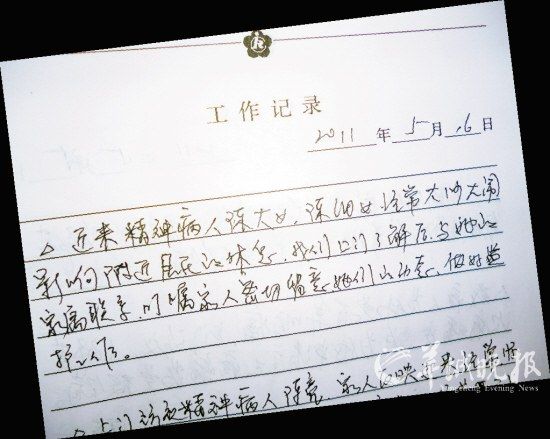 工作记录
2011 年 5 月 16 日
△ 近来精神病人陈大女、陈细女经常大吵大闹
影响附近居民的休息，我们上门了解后与她的
家属联系，叮嘱家人密切留意她们的动态，做好监
护工作。
△ 上门访视精神病人陈 家人反映
羊城晚报
Yangcheng Evening News